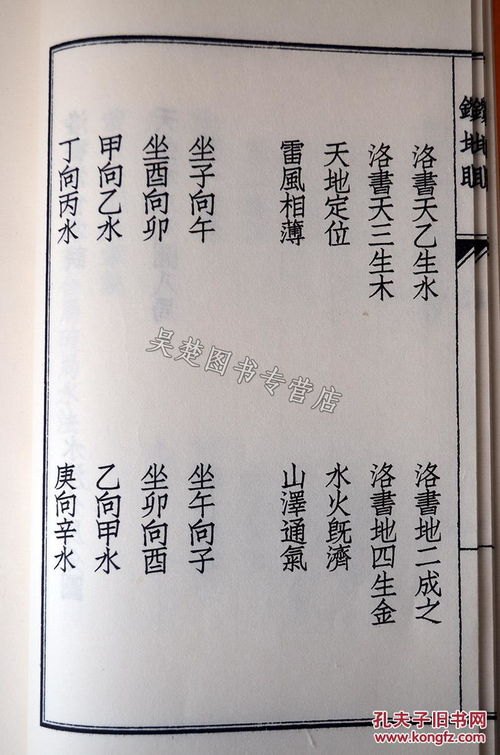 地眼
洛書天乙生水
洛書地二成之
洛書天三生木
洛書地四生金
天地定位
水火既濟
雷風相薄
山澤通氣
坐子向午
坐午向子
坐酉向卯
坐卯向酉
甲向乙水
乙向甲水
丁向丙水
庚向辛水
吴楚图书专营店
孔夫子旧书网
www.kongfz.com